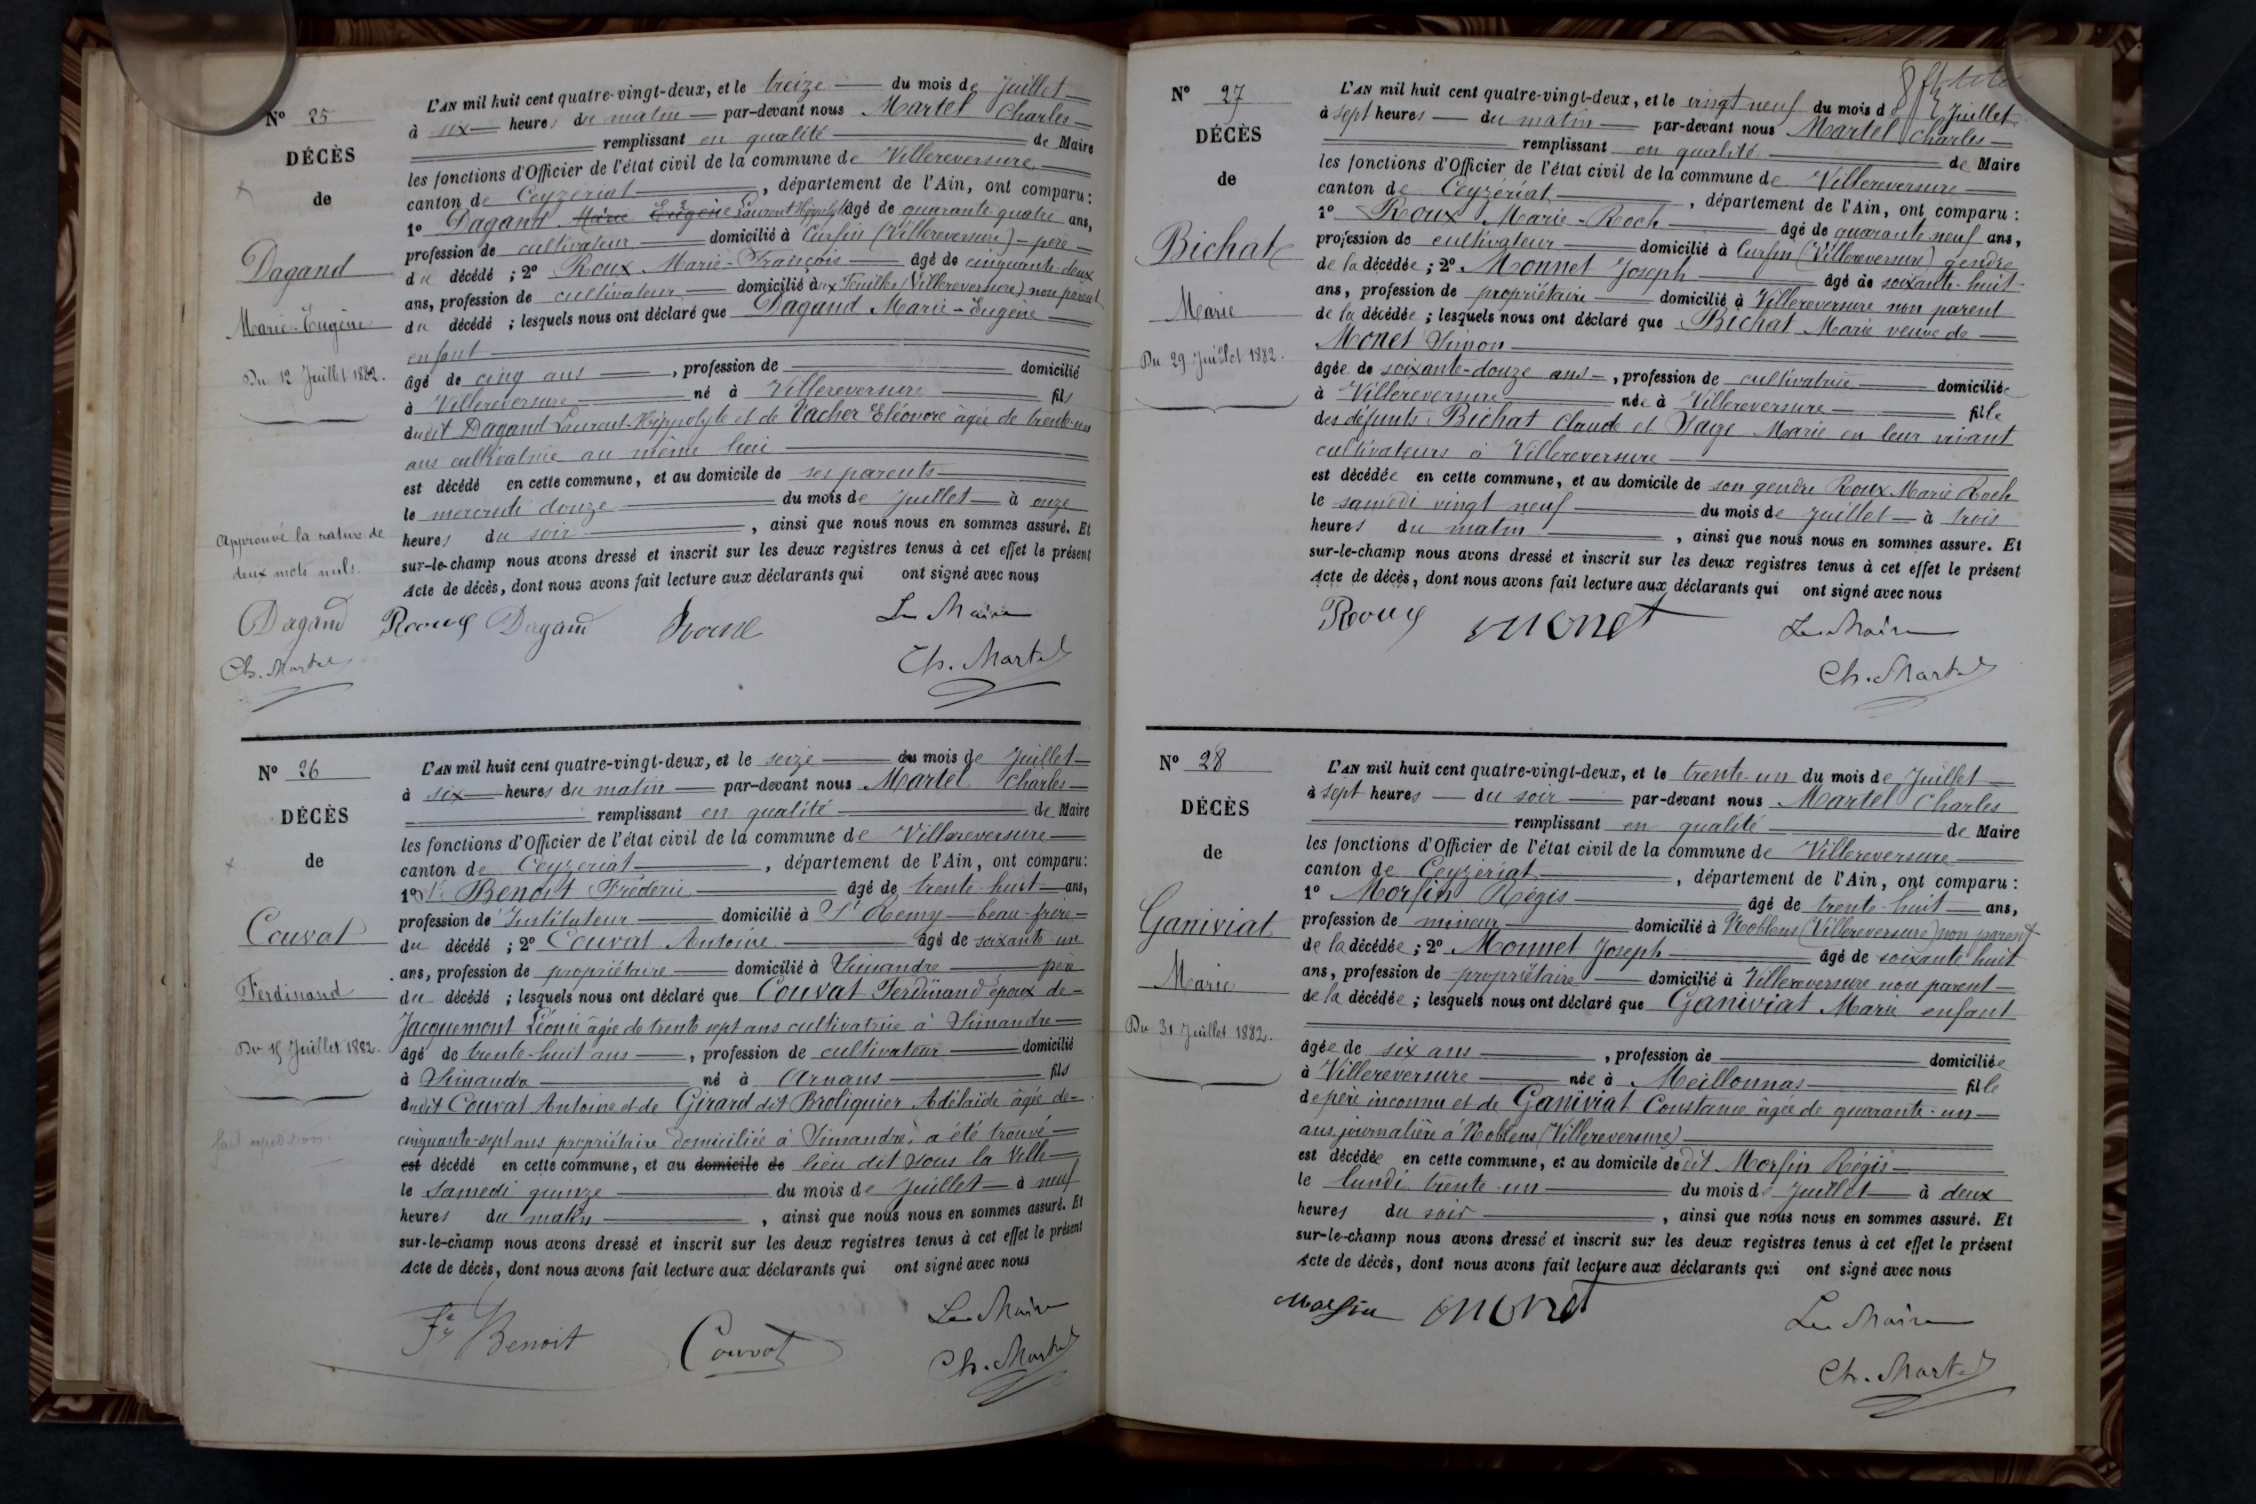 N° 25
DÉCÈS
de
Dagand
Marie-Eugène
Du 12 Juillet 1882.
Approuvé la rature de
deux mots nuls.
Dagand
Ch. Martel
L'AN mil huit cent quatre-vingt-deux, et le treize du mois de Juillet
à six heures du matin par-devant nous Martel Charles
remplissant en qualité de Maire
les fonctions d'Officier de l'état civil de la commune de Villereversure
canton de Ceyzériat, département de l'Ain, ont comparu:
1° Dagand Marie Eugène Laurent Hippolyte âgé de quarante quatre ans,
profession de cultivateur domicilié à Curfin (Villereversure) père
du décédé ; 2° Roux Marie-François âgé de cinquante-deux
ans, profession de cultivateur domicilié aux Feuilles (Villereversure) non parent
du décédé ; lesquels nous ont déclaré que Dagand Marie-Eugène
enfant
âgé de cinq ans, profession de domicilié
à Villereversure né à Villereversure fils
dudit Dagand Laurent-Hippolyte et de Vacher Eléonore âgée de trente-un
ans cultivatrice au même lieu
est décédé en cette commune, et au domicile de ses parents
le mercredi douze du mois de Juillet à onze
heures du soir, ainsi que nous nous en sommes assuré. Et
sur-le-champ nous avons dressé et inscrit sur les deux registres tenus à cet effet le présent
Acte de décès, dont nous avons fait lecture aux déclarants qui ont signé avec nous
Roux Dagand Roux Le Maire
Ch. Martel
N° 26
DÉCÈS
de
Couvat
Ferdinand
Du 15 Juillet 1882.
L'AN mil huit cent quatre-vingt-deux, et le seize du mois de Juillet
à six heures du matin par-devant nous Martel Charles
remplissant en qualité de Maire
les fonctions d'Officier de l'état civil de la commune de Villereversure
canton de Ceyzériat, département de l'Ain, ont comparu:
1° Benoit Fréderic âgé de trente-huit ans,
profession de Instituteur domicilié à St Remy beau-frère
du décédé ; 2° Couvat Antoine âgé de soixante un
ans, profession de propriétaire domicilié à Simandre père
du décédé ; lesquels nous ont déclaré que Couvat Ferdinand époux de
Jacquemont Léonie âgée de trente sept ans cultivatrice à Simandre
âgé de trente-huit ans, profession de cultivateur domicilié
à Simandre né à Arnans fils
dudit Couvat Antoine et de Girard dit Broliquier Adélaïde âgée de
cinquante-sept ans propriétaire domiciliée à Simandre, a été trouvé
est décédé en cette commune, et au domicile de lieu dit sous la Ville
le samedi quinze du mois de Juillet à neuf
heures du matin, ainsi que nous nous en sommes assuré. Et
sur-le-champ nous avons dressé et inscrit sur les deux registres tenus à cet effet le présent
Acte de décès, dont nous avons fait lecture aux déclarants qui ont signé avec nous
Fr Benoit Couvat Le Maire
Ch. Martel
N° 27
DÉCÈS
de
Bichat
Marie
Du 29 Juillet 1882.
L'AN mil huit cent quatre-vingt-deux, et le vingt neuf du mois de Juillet
à sept heures du matin par-devant nous Martel Charles
remplissant en qualité de Maire
les fonctions d'Officier de l'état civil de la commune de Villereversure
canton de Ceyzériat, département de l'Ain, ont comparu :
1° Roux Marie-Roch âgé de quarante neuf ans,
profession de cultivateur domicilié à Curfin (Villereversure) gendre
de la décédée ; 2° Monnet Joseph âgé de soixante-huit
ans, profession de propriétaire domicilié à Villereversure non parent
de la décédée ; lesquels nous ont déclaré que Bichat Marie veuve de
Monet Simon
âgée de soixante-douze ans, profession de cultivatrice domiciliée
à Villereversure née à Villereversure fille
des défunts Bichat Claude et Sage Marie en leur vivant
cultivateurs à Villereversure
est décédée en cette commune, et au domicile de son gendre Roux Marie Roch
le samedi vingt neuf du mois de Juillet à trois
heures du matin, ainsi que nous nous en sommes assuré. Et
sur-le-champ nous avons dressé et inscrit sur les deux registres tenus à cet effet le présent
Acte de décès, dont nous avons fait lecture aux déclarants qui ont signé avec nous
Roux monet Le Maire
Ch. Martel
N° 28
DÉCÈS
de
Ganiviat
Marie
Du 31 Juillet 1882.
L'AN mil huit cent quatre-vingt-deux, et le trente-un du mois de Juillet
à sept heures du soir par-devant nous Martel Charles
remplissant en qualité de Maire
les fonctions d'Officier de l'état civil de la commune de Villereversure
canton de Ceyzériat, département de l'Ain, ont comparu :
1° Morfin Régis âgé de trente-huit ans,
profession de mineur domicilié à Noblens (Villereversure) non parent
de la décédée ; 2° Monnet Joseph âgé de soixante huit
ans, profession de propriétaire domicilié à Villereversure non parent
de la décédée ; lesquels nous ont déclaré que Ganiviat Marie enfant
âgée de six ans, profession de domiciliée
à Villereversure née à Meillonnas fille
de père inconnu et de Ganiviat Constance âgée de quarante-un
ans journalière à Noblens (Villereversure)
est décédée en cette commune, et au domicile dedit Morfin Régis
le lundi trente-un du mois de Juillet à deux
heures du soir, ainsi que nous nous en sommes assuré. Et
sur-le-champ nous avons dressé et inscrit sur les deux registres tenus à cet effet le présent
Acte de décès, dont nous avons fait lecture aux déclarants qui ont signé avec nous
Morfin monet Le Maire
Ch. Martel